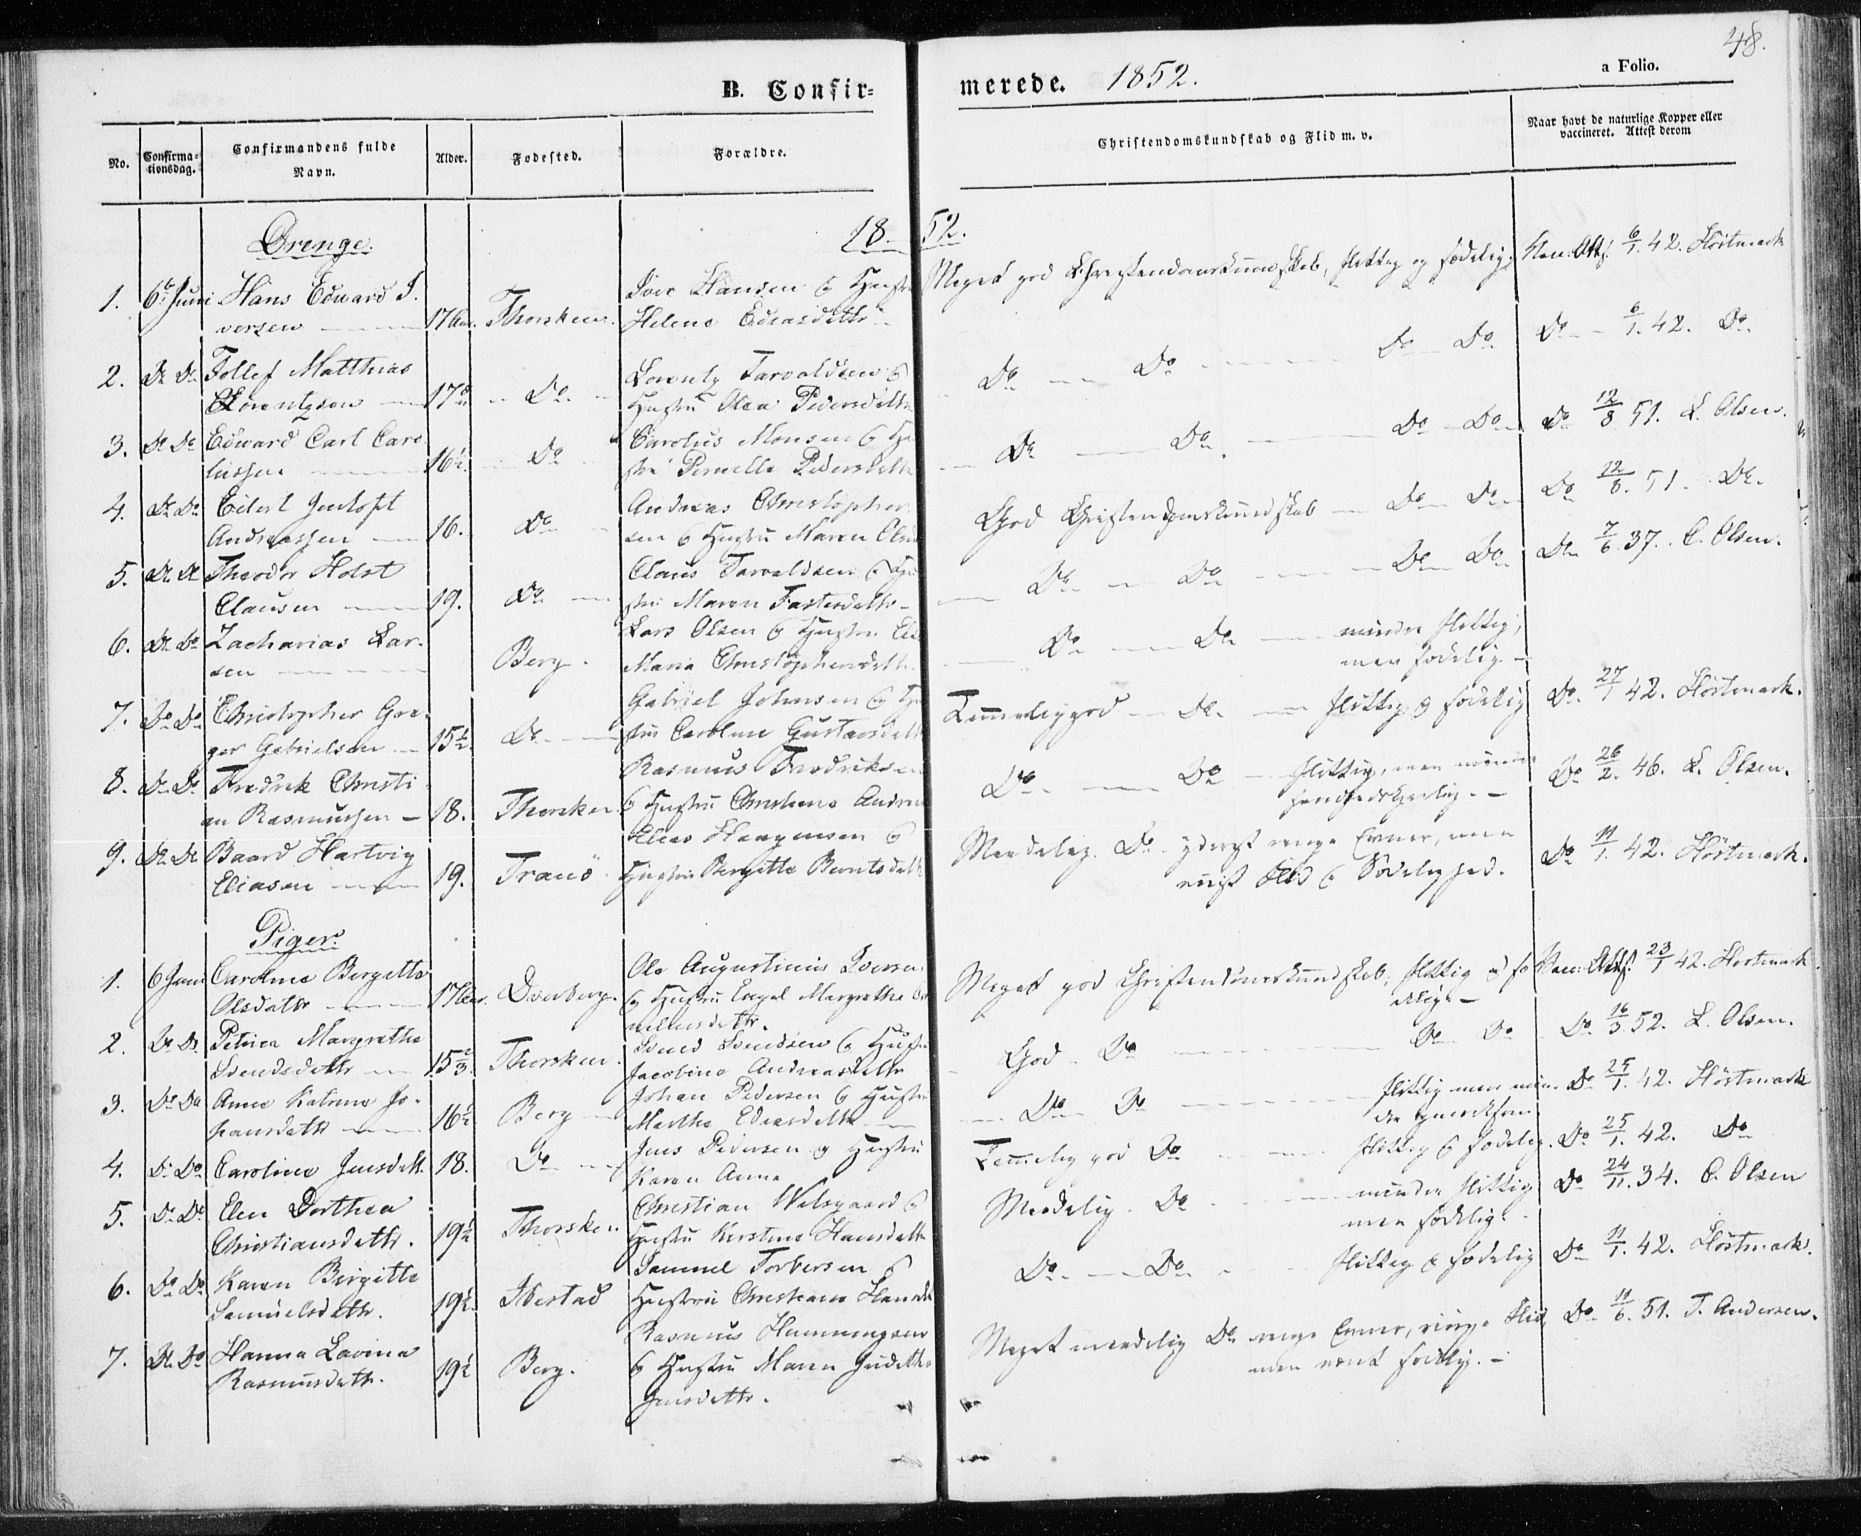 48.
B. Confirmerede. 1852. a Folio.
No. Confirmationsdag. Confirmandens fulde Navn. Alder. Fødested. Forældre. Christendomskundskab og Flid m. v. Naar havt de naturlige Kopper eller vaccineret. Attest derom
Drenge. 1852.
1. 6te Juni Hans Edward I- Iver Hansen & Hustru Meget god Christendomskundskab, flittig og sædelig. 6/1. 42. Höstmark
versen 17 Aar. Thorsken. Helene Eliasdattr
2. Do Do Tollef Matthias Lorentz Tarvaldsen & Do Do Do Do Do 6/1. 42. Do.
Lorentzsen Do Hustru Olea Pedersdattr
3. Do Do Edward Carl Caro- Carolus Monsen & Hu- Do Do Do Do Do 12/8 51. L. Olsen.
lussen 16½ Do stru Pernelle Pedersdattr
4. Do Do Eilert Andreas Christopher- God Christendomskundskab Do Do Do 12/8. 51. Do.
Andreassen 16. Do sen & Hustru Maren Olsd
5. Do Do Theodor Holst Claus Tarvaldsen & Hu- Do Do Do Do Do 7/6. 37. C. Olsen.
Clausen 19. Do stru Maren
6. Do Do Zacharias Lar- Lars Olsen & Hustru Do Do mindre flittig,
sen Berg. Maria Christophersdattr men sædelig
7. Do Do Christopher Gre- Gabriel Johnsen & Hu- Temmelig god Do flittig & sædelig Do 27/1 42. Höstmark.
ger Gabrielsen 15½ Do stru Caroline Gustavsdattr
8. Do Do Fredrik Christi- Rasmus Fredriksen Do Do flittig, men mindre Do 26/2. 46. L. Olsen.
an Rasmussen 18. Thorsken & Hustru Christiana
9. Do Do Baard Hartvig Elias Haagensen & Maadelig Do yderst ringe Evner, men Do 11/1. 42. Höstmark.
Eliasen 19. Tranö Hustru Bergitte Berntsdattr Flid & Sædelighed.
Piger.
1. 6 Juni Caroline Bergitte Ole Augustinus Iversen Meget god Christendomskundskab, flittig & sæ- 23/1 42. Höstmark
Olsdattr 17 Aar. Dverberg. & Hustru Engel Margrethe Cor- delig.
nelusdattr.
2. Do Do Petrica Margrethe Svend Svendsen & Hustru God Do Do Do Do 16/3 52. L. Olsen.
Svendsdattr 15⅔ Thorsken. Jacobine Andreasdattr
3. Do Do Anne Katrine Jo- Johan Pedersen & Hustru Do Do flittig men min- Do 25/1. 42. Höstmark
hansdattr 16½ Berg Martha Eliasdattr
4. Do Do Caroline Jensdattr 18. Do Jens Pedersen & Hustru Temmelig god Do flittig & sædelig. Do 25/1. 42. Do
Karen Anna
5. Do Do Elen Dorthea Christian & Maadelig Do mindre flittig Do 24/11. 34. C. Olsen
Christiansdattr. 19½ Thorsken Hustru Kirstine Hansdattr men sædelig.
6. Do Do Karen Birgitte Samuel Torbersen & Do Do flittig & sædelig Do 11/1. 42. Höstmark.
Samuelsdattr. 19½ Ibestad Hustru Christiana Hansdattr
7. Do Do Hanna Lavina Rasmus Hemmingsen Meget maadelig Do ringe Evner, ringe Flid, Do 11/6. 51. T. Andersen.
Rasmusdattr. 19½ Berg. & Hustru Maren men sædelig.
Jensdattr.